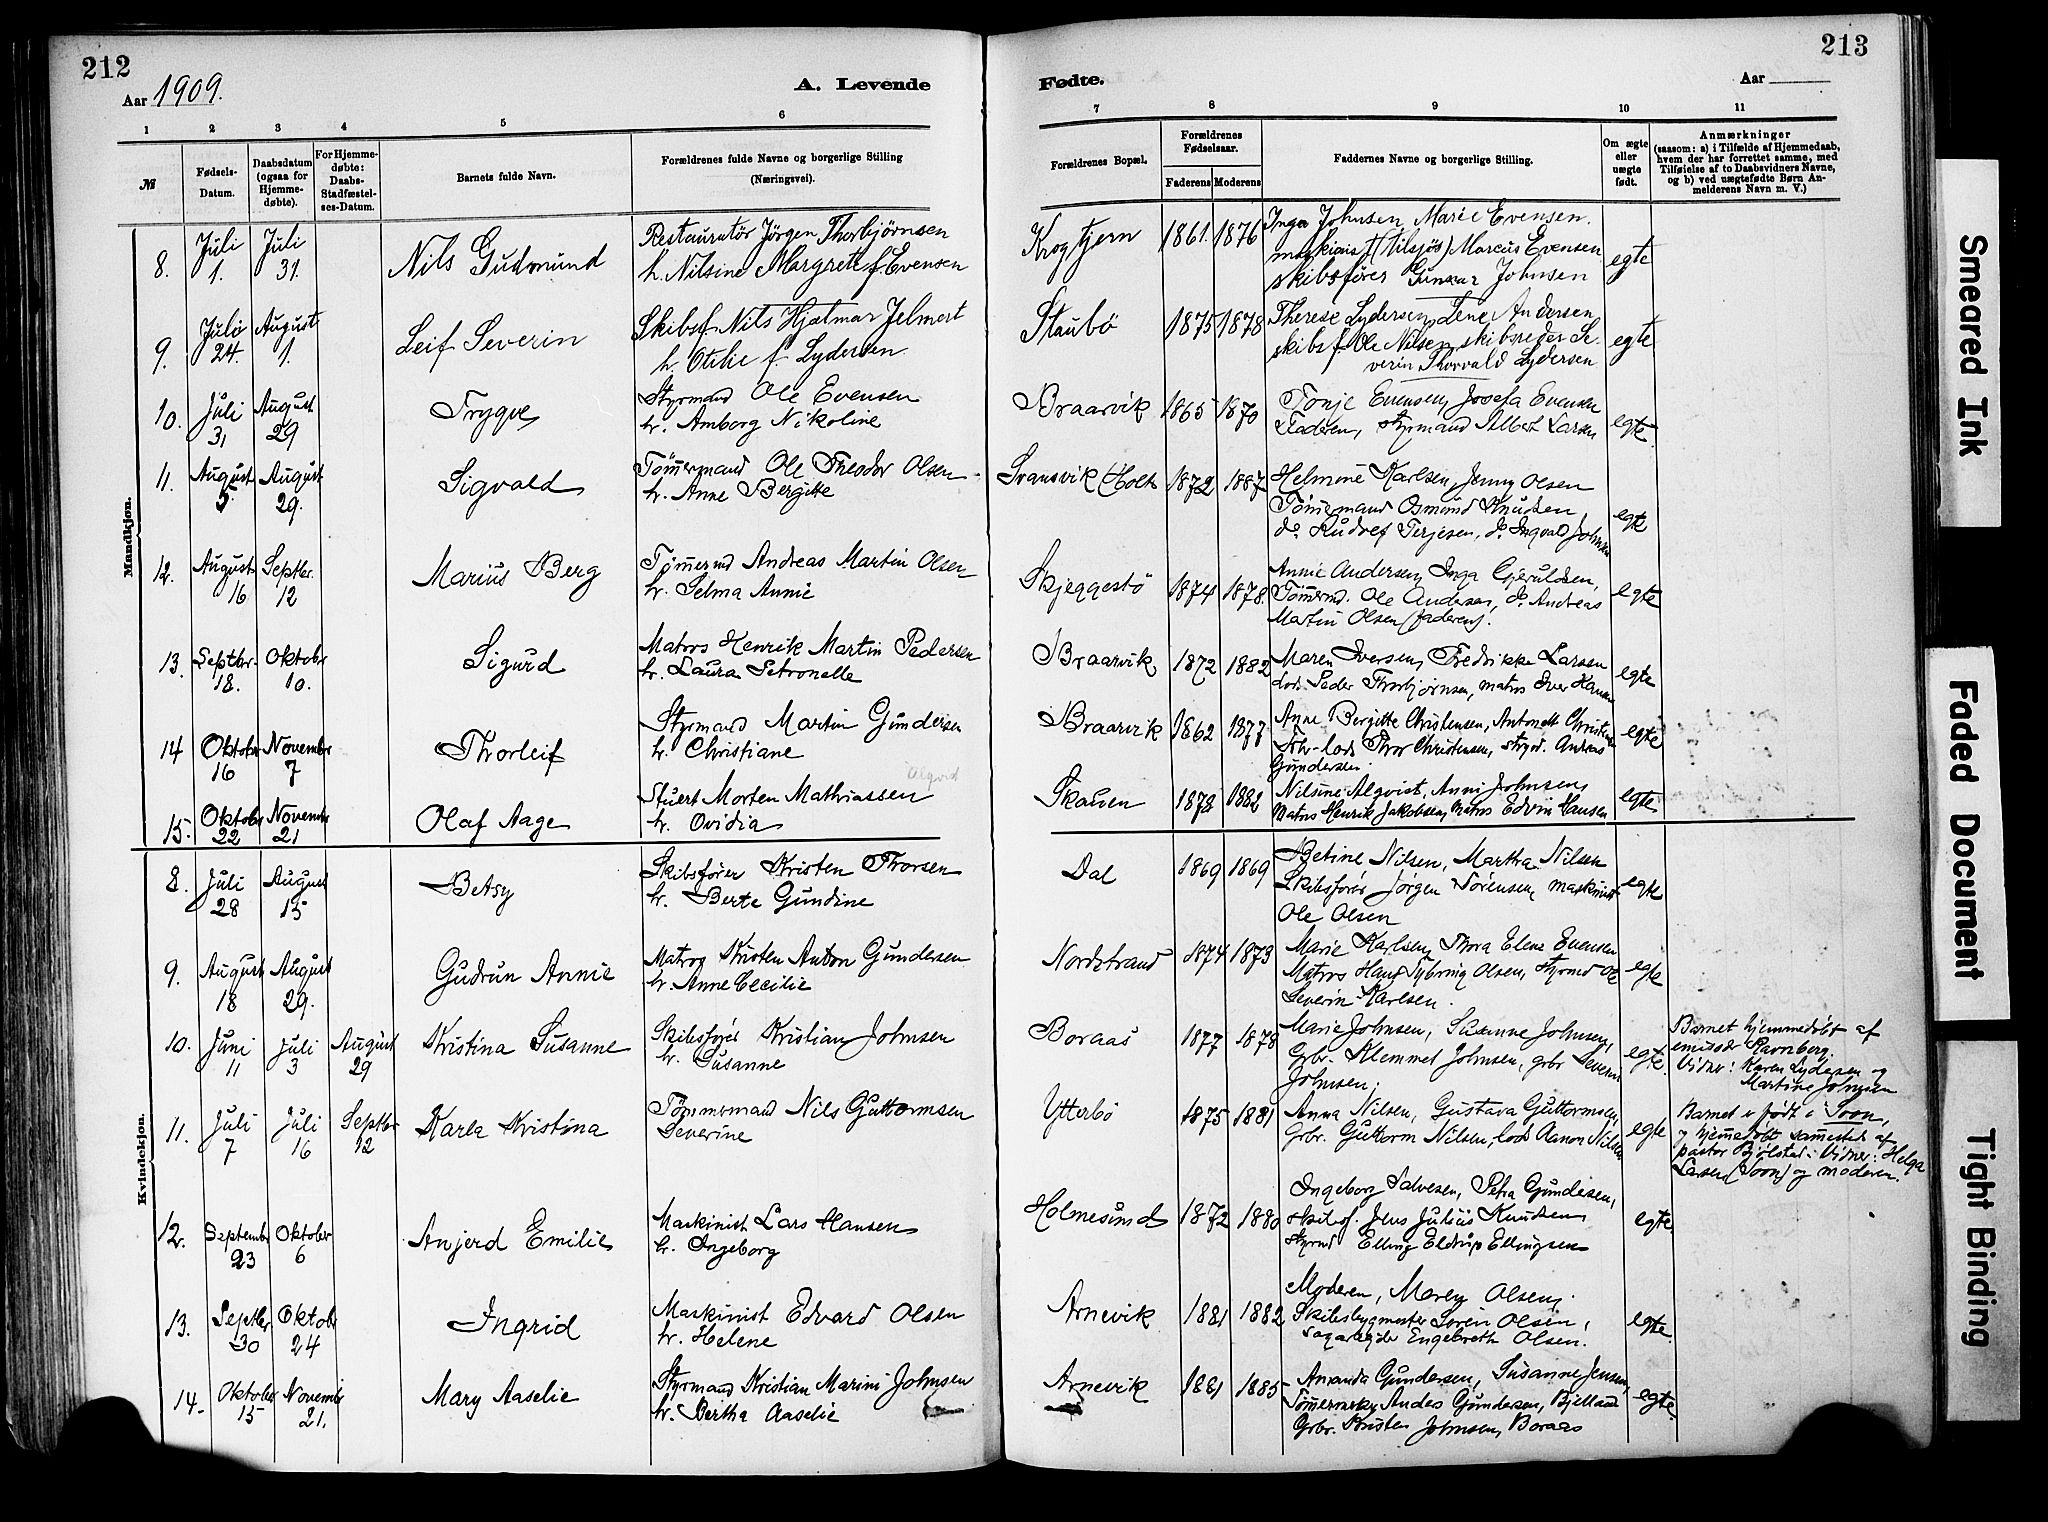 212
Aar 1909.
A. Levende
1 2 3 4 5 6
№
Fødsels-Datum.
Daabsdatum (ogsaa for Hjemme-døbte).
For Hjemme-døbte: Daabs-Stadfæstel-ses-Datum.
Barnets fulde Navn.
Forældrenes fulde Navne og borgerlige Stilling (Næringsvei).
Mandkjøn.
8. Juli 1. Juli 31. Nils Gudmund
Restauratör Jörgen Thorbjørnsen
h. Nilsine Margrete f. Evensen
9. Juli 24. August 1. Leif Severin
Skibsf. Nils Hjalmar Jelmert
h. Otilie f. Lydersen
10. Juli 31 August 29 Trygve
Styrmand Ole Evensen
h. Amborg Nikoline
11. August 5 August 29. Sigvald
Tömmermand Ole Theodor Olsen
h. Anne Bergitte
12. August 16 Septbr. 12 Marius Berg
Tømmermd Andreas Martin Olsen
h. Selma Annie
13 Septbr. 18. Oktober 10. Sigurd
Matros Henrik Martin Pedersen
h. Laura Petronelle
14 Oktober 16 November 7 Thorleif
Styrmand Martin Gundersen
h. Christiane
15. Oktober 22 November 21 Olaf Aage
Stuert Morten Mathiassen
h. Ovidia
Kvindekjøn.
8. Juli 28 August 15 Betsy
Skibsfører Kristen Thorsen
h. Berte Gundine
9. August 18 August 29. Gudrun Annie
Matros Kristen Anton Gundersen
h. Anne Cecilie
10. Juni 11 Juli 3 August 29 Kristina Susanne
Skibsfører Kristian Johnsen
h. Susanne
11. Juli 7 Juli 16 Septbr 12 Karla Kristina
Tömmermand Nils Guttormsen
Severine
12. September 23 Oktober 6 Anjerd Emilie
Maskinist Lars Hansen
h. Ingeborg
13. Septbr 30 Oktobr 24 Ingrid
Maskinist Edvard Olsen
h. Helene
14. Oktober 15 Novembr 21. Mary Aaselie
Styrmand Kristian Marini Johnsen
h. Bertha Aaselie
213
Fødte.
Aar
7 8 9 10 11
Forældrenes Bopæl.
Forældrenes Fødselsaar.
Faderens Moderens
Faddernes Navne og borgerlige Stilling.
Om ægte eller uægte født.
Anmærkninger
(saasom: a) i Tilfælde af Hjemmedaab,
hvem der har forrettet samme, med
Tilføielse af to Daabsvidners Navne,
og b) ved uægtefødte Børn An-
melderens Navn m. V.)
Krogtjern 1861. 1876 Inga Johnsen, Marie Evensen.
maskinist Marcus Evensen
skibsfører Gunnar Johnsen egte
Staubø 1875 1878 Therese Lydersen, Lene Andersen
skibsf. Ole Nilsen, skibsreder Se-
verin Thorvald Lydersen egte
Braarvik 1865 1870 Tonje Evensen, Josefa Evensen
Faderen, styrmand Albert Larsen egte.
Svansvik (Holt) 1872 1887 Helmine Karlsen, Jenny Olsen
Tömmermand Osmund Knutsen,
do. Rudolf Terjesen, do. Ingvald Johnsen egte
Skjeggestö 1874 1878. Annie Andersen, Inga Gjeruldsen,
Tömmermd. Ole Andersen, do. Andreas
Martin Olsen (faderen). egte
Braarvik 1872 1882 Maren Iversen, Fredrikke Larsen
lods Peder Thorbjørnsen, matros Iver Hansen egte
Braarvik 1862 1877 Anne Bergitte Christensen,
Thor Christensen, styrmd. Andreas
Gundersen. egte
Skauen 1878 1882 Nilsine Alqvist, Anni Johnsen,
Matros Henrik Jakobsen, Matros Edvin Hansen egte
Dal 1869 1869 Betine Nilsen, Martha Nilsen
Skibsfører Jørgen Sörensen, maskinist
Ole Olsen egte
Nordstrand 1874 1873 Marie Karlsen, Thora Elene Evensen
Matros Hans Olsen, Styrmd Ole
Severin Karlsen. egte
Boraas 1877 1878 Marie Johnsen, Susanne Johnsen,
Grbr. Klemmet Johnsen, grbr Severin
Johnsen. egte.
Barnet hjemmedøbt af
emissær Ravnberg.
Vidner: Karen Lydersen og
Martine Johnsen
Ytterbö 1875 1881 Anna Nilsen, Gustava Guttormsen,
Grbr. Guttorm Nilsen, lods Aanon Nilsen egte
Barnet er født i Soon,
og hjemmedøbt sammested af
pastor Bjölstad. Vidner: Helga
Larsen (Soon) og moderen.
Holmesund 1872 1880 Ingeborg Salvesen, Petra Gundersen,
skibsf. Jens Julius Knudsen,
styrmd Elling Eldrup Ellingsen egte.
Arnevik 1881 1882 Moderen, Maren Olsen,
Skibsbygmester Soren Olsen,
Engebreth Olsen. egte.
Arnevik 1881 1885 Amanda Gundersen, Susanne Jensen,
Anders Gundersen, Bjelland
Grbr. Kristen Johnsen, Boraas egte.
Smeared Ink
Faded Document
Tight Binding